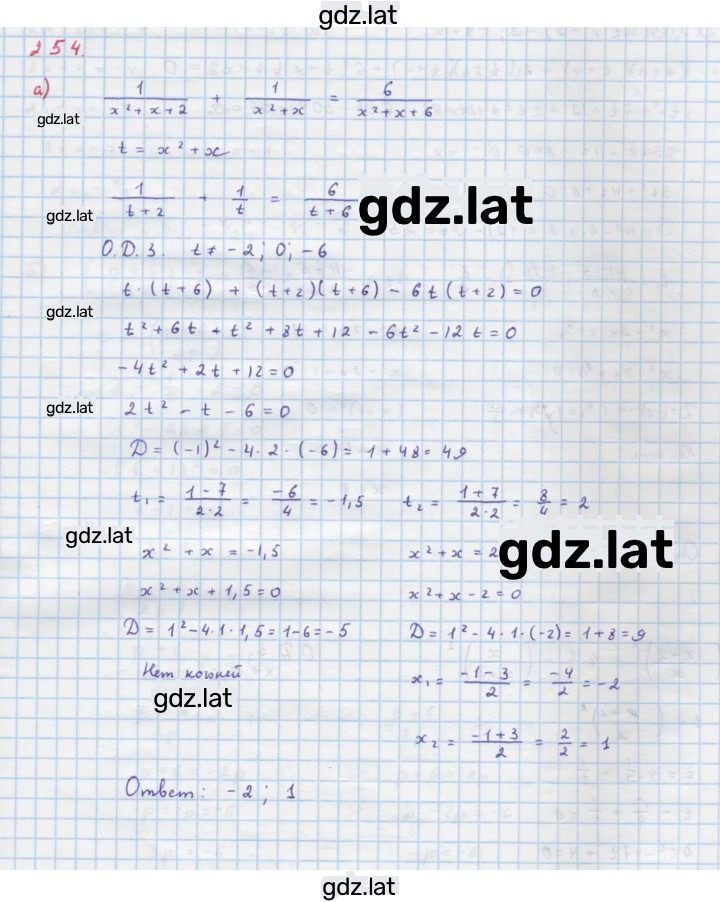 gdz.lat
254.
а) 1/(x²+x+2) + 1/(x²+x) = 6/(x²+x+6)
gdz.lat
t = x²+x
1/(t+2) + 1/t = 6/(t+6)
gdz.lat
gdz.lat
О.Д.З. t ≠ -2; 0; -6
t·(t+6) + (t+2)(t+6) - 6t(t+2) = 0
gdz.lat
t²+6t + t²+8t+12 - 6t² - 12t = 0
-4t² + 2t + 12 = 0
gdz.lat
2t² - t - 6 = 0
D = (-1)² - 4·2·(-6) = 1+48 = 49
t₁ = (1-7)/(2·2) = -6/4 = -1,5 t₂ = (1+7)/(2·2) = 8/4 = 2
gdz.lat
gdz.lat
x² + x = -1,5 x²+x = 2
x² + x + 1,5 = 0 x²+x-2 = 0
D = 1²-4·1·1,5 = 1-6 = -5 D = 1²-4·1·(-2) = 1+8 = 9
Нет корней x₁ = (-1-3)/2 = -4/2 = -2
gdz.lat
x₂ = (-1+3)/2 = 2/2 = 1
Ответ: -2; 1
gdz.lat